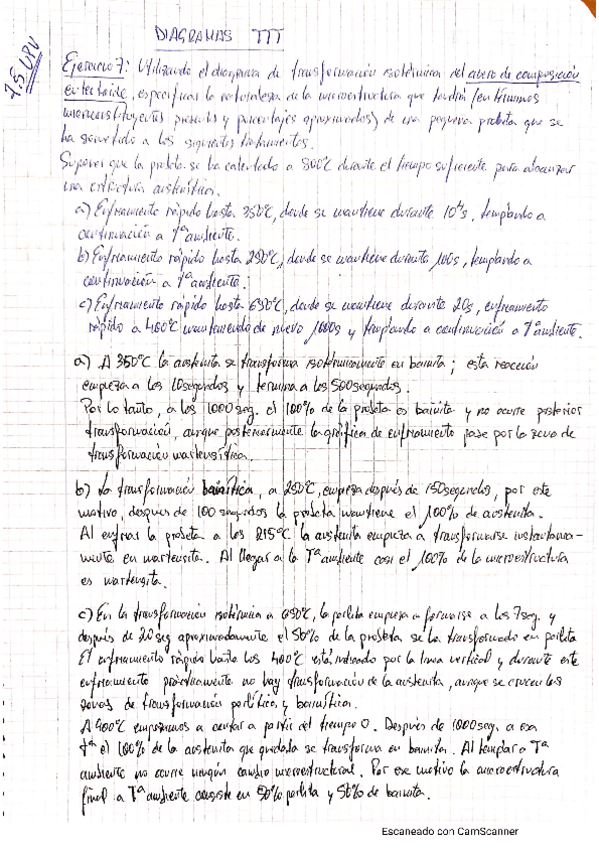 DIAGRAMAS TTT
7.5 UPV
Ejercicio 7: Utilizando el diagrama de transformación isotérmica del acero de composición
eutectoide, especificar la naturaleza de la microestructura que tendrá (en términos
microconstituyentes presentes y porcentajes aproximados) de una pequeña probeta que se
ha sometido a los siguientes tratamientos.
Suponer que la probeta se ha calentado a 800ºC durante el tiempo suficiente para alcanzar
una estructura austenítica.
a) Enfriamiento rápido hasta 350ºC, donde se mantiene durante 10⁴s, templando a
continuación a Tª ambiente.
b) Enfriamiento rápido hasta 250ºC, donde se mantiene durante 100s, templando a
continuación a Tª ambiente.
c) Enfriamiento rápido hasta 650ºC, donde se mantiene durante 20s, enfriamiento
rápido a 400ºC manteniendo de nuevo 1000s y templando a continuación a Tª ambiente.
a) A 350ºC la austenita se transforma isotérmicamente en bainita; esta reacción
empieza a los 10 segundos y termina a los 500 segundos.
Por lo tanto, a los 1000 seg. el 100% de la probeta es bainita y no ocurre posterior
transformación, aunque posteriormente la gráfica de enfriamiento pase por la zona de
transformación martensítica.
b) La transformación bainítica, a 250ºC, empieza después de 150 segundos, por este
motivo, después de 100 segundos la probeta mantiene el 100% de austenita.
Al enfriar la probeta a los 215ºC la austenita empieza a transformarse instantanea-
mente en martensita. Al llegar a la Tª ambiente casi el 100% de la microestructura
es martensita.
c) En la transformación isotérmica a 650ºC, la perlita empieza a formarse a los 7 seg. y
después de 20 seg aproximadamente el 50% de la probeta se ha transformado en perlita
El enfriamiento rápido hasta los 400ºC está indicado por la línea vertical y durante este
enfriamiento prácticamente no hay transformación de la austenita, aunque se crucen las
zonas de transformación perlítica y bainítica.
A 400ºC empezamos a contar a partir del tiempo 0. Después de 1000 seg. a esa
Tª el 100% de la austenita que quedaba se transforma en bainita. Al templar a Tª
ambiente no ocurre ningún cambio microestructural. Por ese motivo la microestructura
final a Tª ambiente consiste en 50% perlita y 50% de bainita.
Escaneado con CamScanner